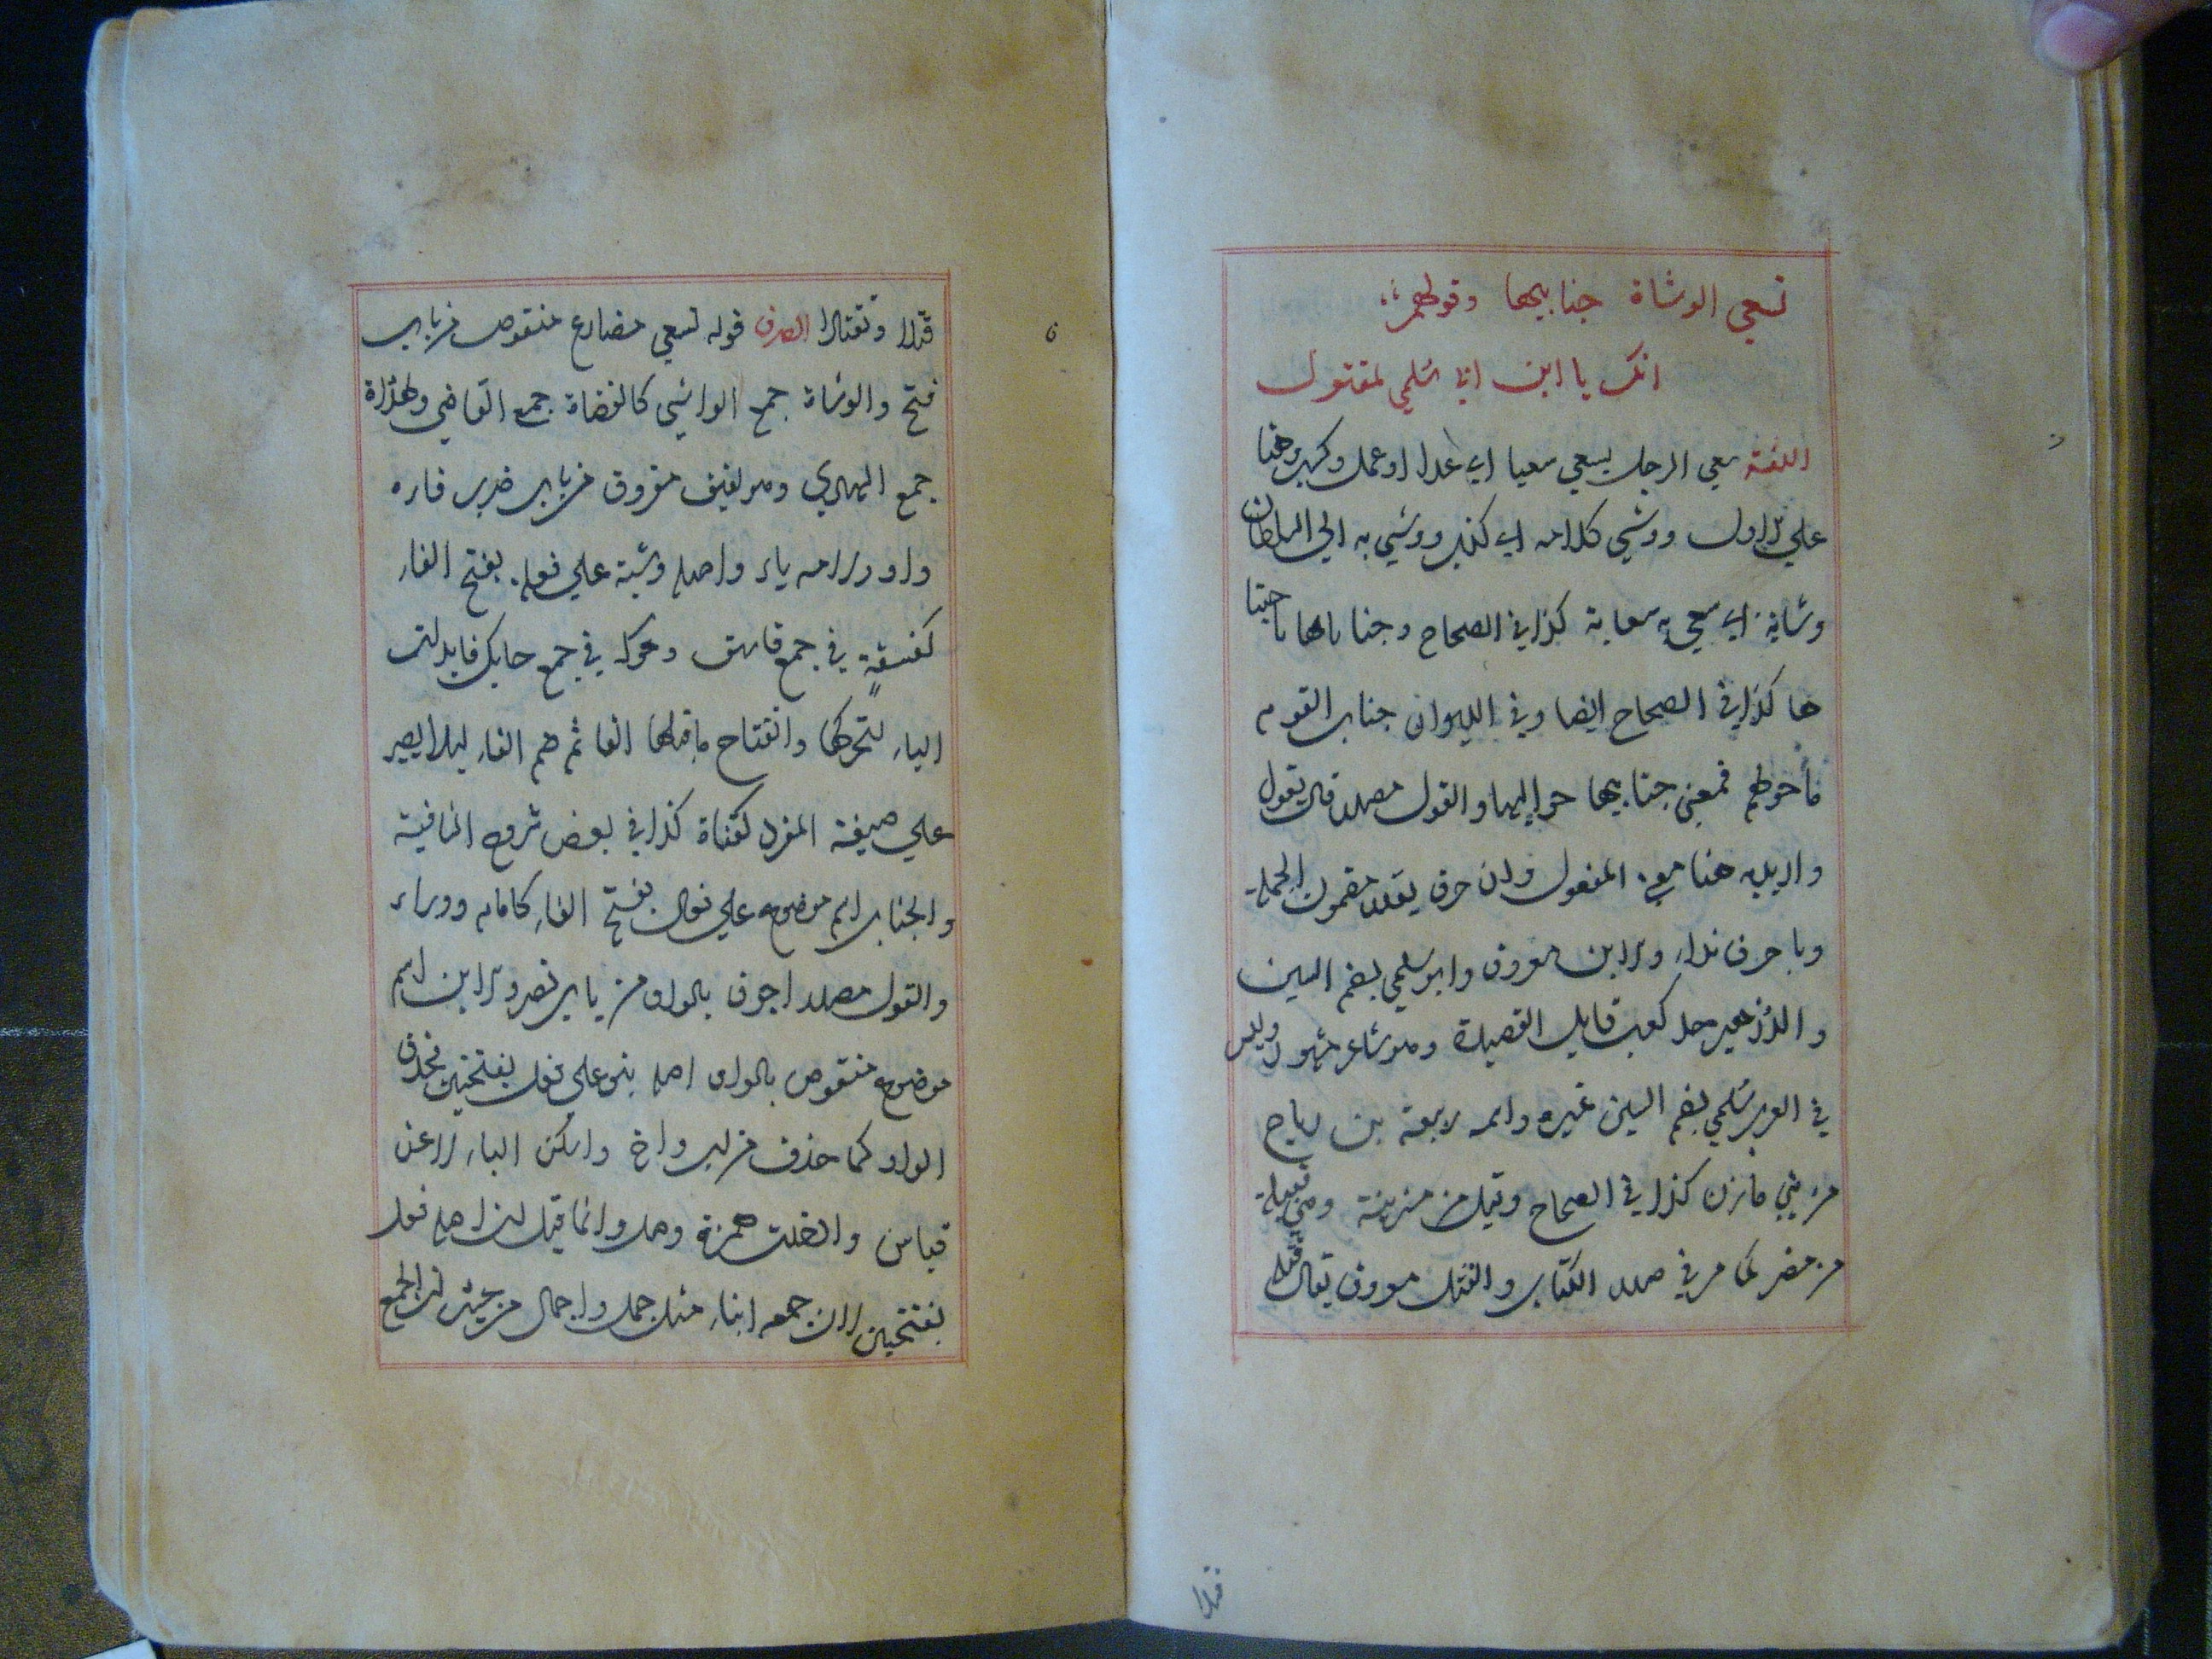 تسعي الوشاة جنابيها وقولهم
انك يا ابن ابي سلمي لمقتول
اللغة سعي الرجل يسعي سعيا اي عدا او عمل وكسب وهنا
علي الاول ووشي كلامه اي كذب ووشي به الي السلطان
وشاية اي سعي به سعاية كذا في الصحاح وجناباها ناحيتا
ها كذا في الصحاح ايضا وفي الديوان جناب القوم
ماحولهم فمعني جنابيها حواليها والقول مصدر قال يقول
هنا معني المفعول وان حرف مضمون الجملة
ويا حرف نداء والابن معروف وابو سلمي بضم السين
والد زهير جد كعب قايل القصيدة وهو شاعر مشهور وليس
في العرب سلمي بضم السين غيره واسمه ربيعة بن رباح
من بني مازن كذا في الصحاح وقيل من مزينة وهي قبيلة
من مضر كما مر في صدر الكتاب والقتل معروف يقال قتله
قتلا
قتلا وتقتالا الصرف قوله تسعي مضارع منقوص من باب
فتح والوشاة جمع الواشي كالقضاة جمع القاضي والهداة
جمع الهادي وهو لفيف مفروق من باب ضرب فاره
واو ولامه ياء واصله وشية علي فعلة بفتح الفاء
كفسقة في جمع فاسق وحوكة في جمع حايك فابدلت
الياء لتحركها وانفتاح ماقبلها الفا ثم ضم الفاء ليلا يصير
علي صيغة المفرد كقناة كذا في بعض شروح الشافية
والجناب اسم موضوع علي فعال بفتح الفاء كامام ووراء
والقول مصدر اجوف بالواو من باب نصر والابن اسم
موضوع منقوص بالواو اصله بنو علي فعل بفتحتين فحذف
الواو كما حذف من اب واخ واسكن الباء لا عن
قياس وادخلت همزة وصل وانما قيل ان اصله فعل
بفتحتين لان جمعه ابناء مثل جمل واجمال من حيث ان الجمع